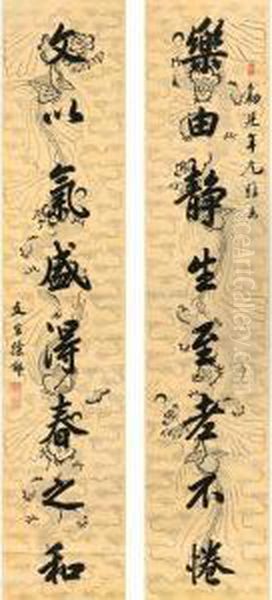 樂由靜生至老不惓
文以氣盛得春之和